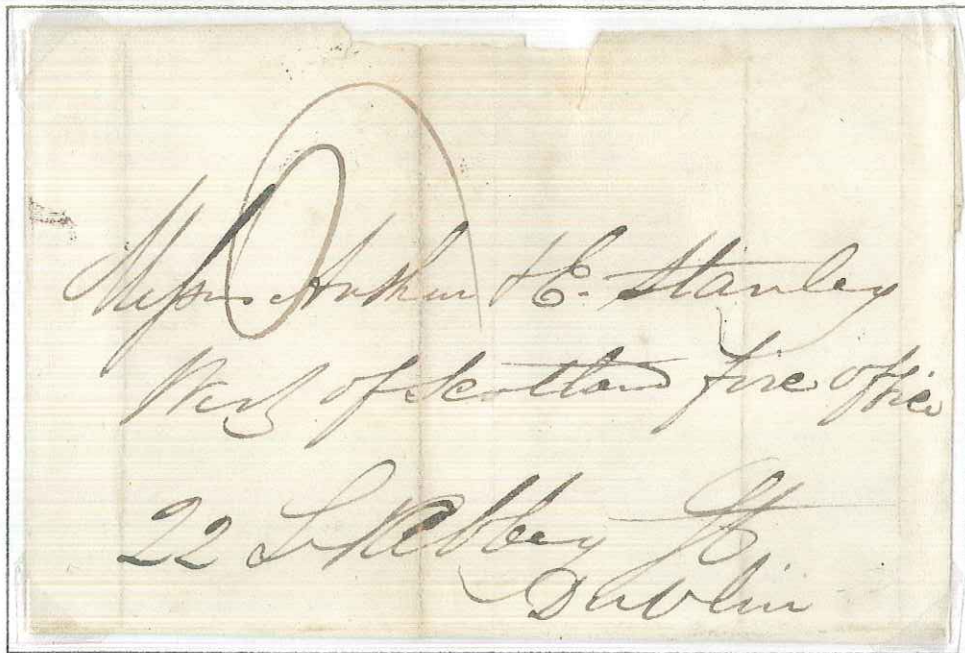 Messrs Arthur & E. Stanley
West of Scotland Fire Office
22 Lr Abbey St.
Dublin